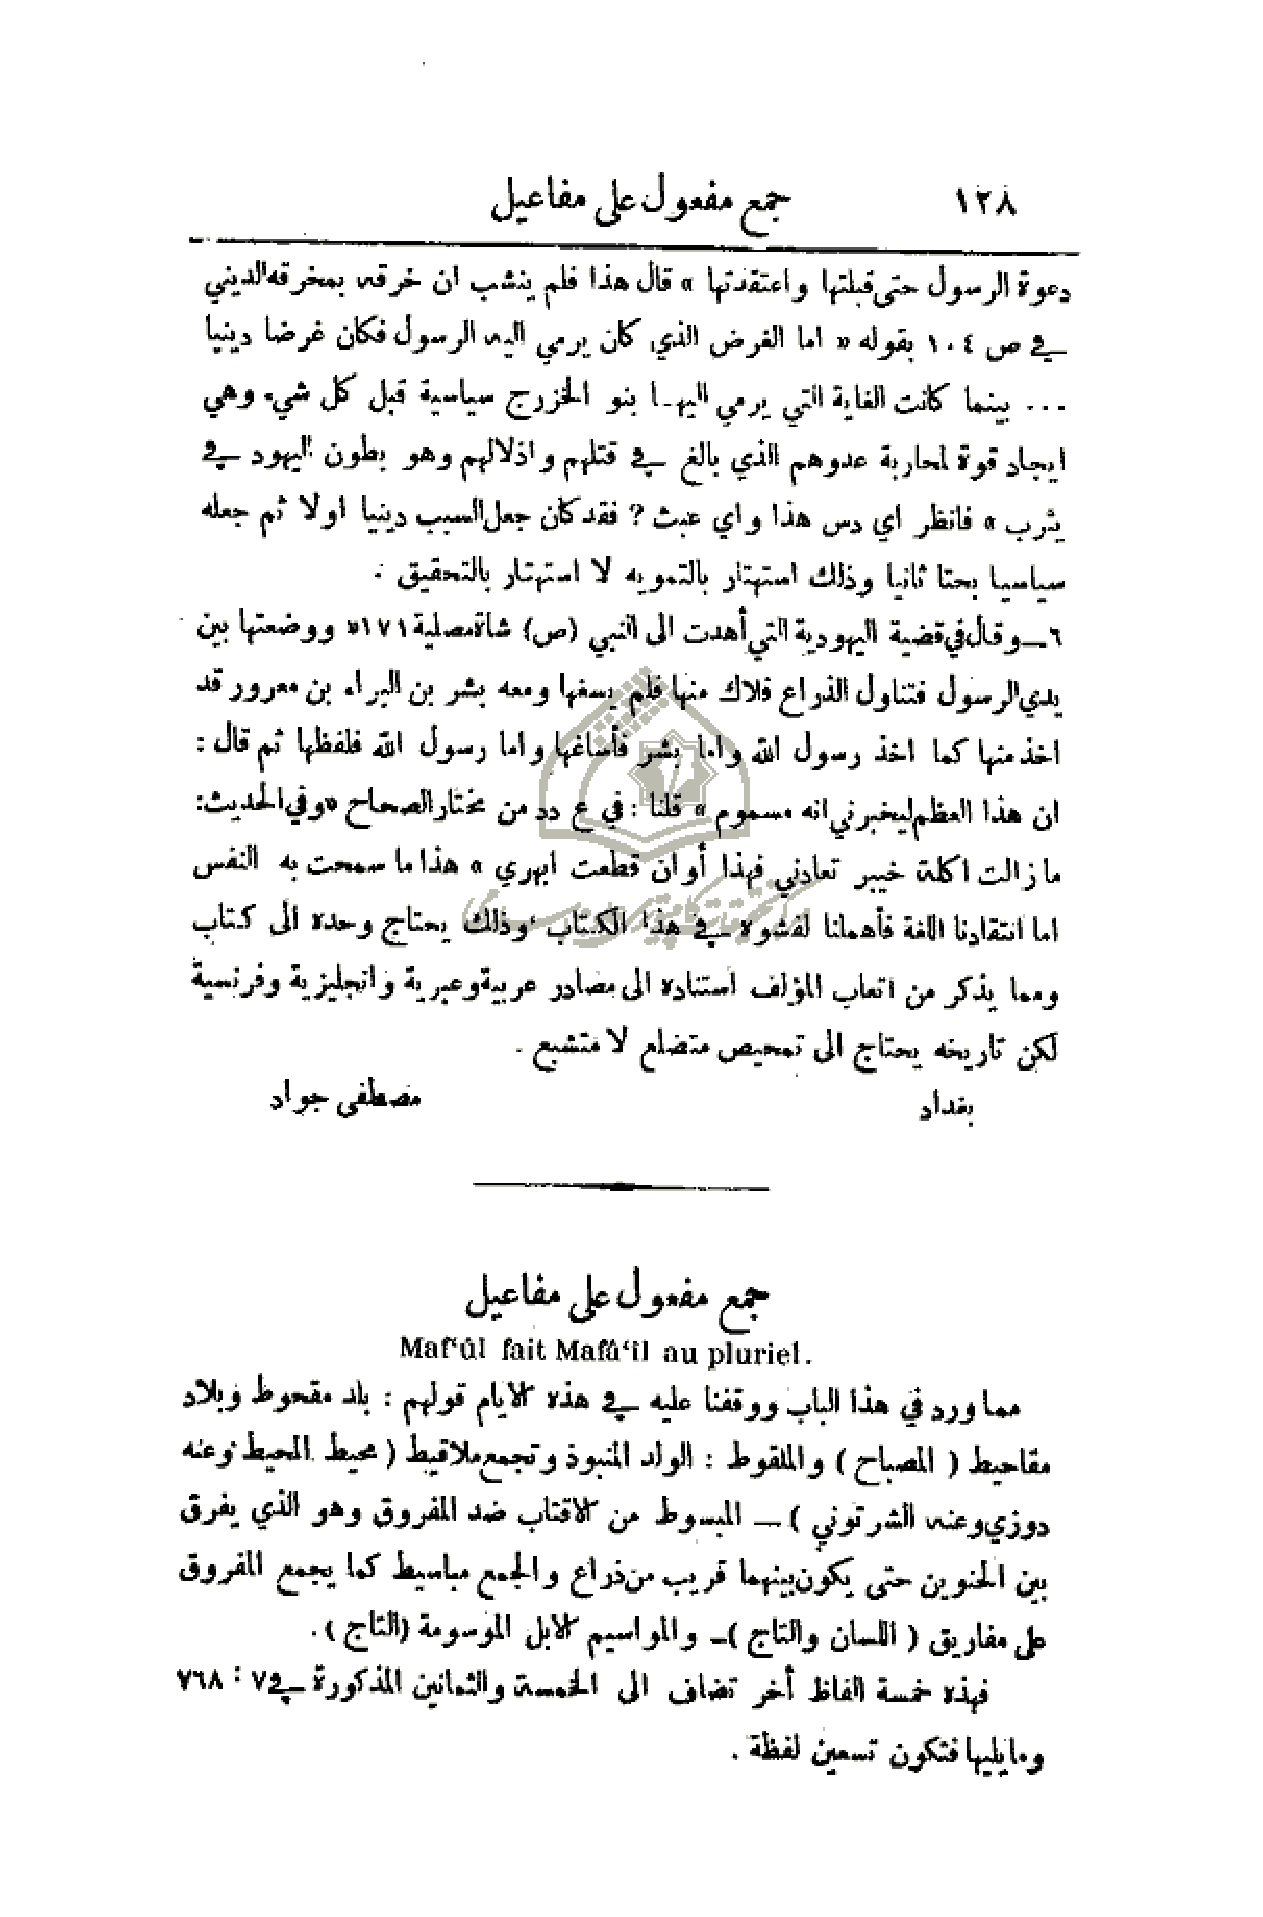 ١٢٨ جمع مفعول على مفاعيل
دعوة الرسول حتى قبلتها واعتقدتها » قال هذا فلم ينشب ان خرقه بمخرقه الديني
في ص ١٠٤ بقوله « اما الغرض الذي كان يرمي اليه الرسول فكان غرضا دينيا
... بينما كانت الغاية التي يرمي اليها بنو الخزرج سياسية قبل كل شيء وهي
ايجاد قوة لمحاربة عدوهم الذي بالغ في قتلهم واذلالهم وهو بطون اليهود في
يثرب » فانظر اي دس هذا واي عبث ? فقد كان جعل السبب دينيا اولا ثم جعله
سياسيا بحتا ثانيا وذلك استهتار بالتمويه لا استهتار بالتحقيق .
٦ــ وقال في قضية اليهودية التي أهدت الى النبي (ص) شاة مصلية ١٧١ « ووضعتها بين
يدي الرسول فتناول الذراع فلاك منها فلم يسغها ومعه بشر بن البراء بن معرور قد
اخذ منها كما اخذ رسول الله واما بشر فأساغها واما رسول الله فلفظها ثم قال :
ان هذا العظم ليخبرني انه مسموم » قلنا : في ع دد من مختار الصحاح «وفي الحديث:
ما زالت اكلة خيبر تعادني فهذا أوان قطعت ابهري » هذا ما سمحت به النفس
اما انتقادنا اللغة فأهملنا لفشوه في هذا الكتاب ، وذلك يحتاج وحده الى كتاب
ومما يذكر من اتعاب المؤلف استناده الى مصادر عربية وعبرية وانجليزية وفرنسية
لكن تاريخه يحتاج الى تمحيص متضلع لا متشبع .
بغداد مصطفى جواد
جمع مفعول على مفاعيل
Maf‘ûl fait Mafâ‘îl au pluriel.
مما ورد في هذا الباب ووقفنا عليه في هذه الايام قولهم : بلد مقحوط وبلاد
مقاحيط ( المصباح ) والملقوط : الولد المنبوذ وتجمع ملاقيط ( محيط المحيط وعنه
دوزي وعنه الشرتوني ) ــ المبسوط من الاقتاب ضد المفروق وهو الذي يفرق
بين الحنوين حتى يكون بينهما قريب من ذراع والجمع مباسيط كما يجمع المفروق
على مفاريق ( اللسان والتاج )ــ والمواسيم الابل الموسومة (التاج ) .
فهذه خمسة الفاظ أخر تضاف الى الخمسة والثمانين المذكورة في ٧ : ٧٦٨
وما يليها فتكون تسعين لفظة .